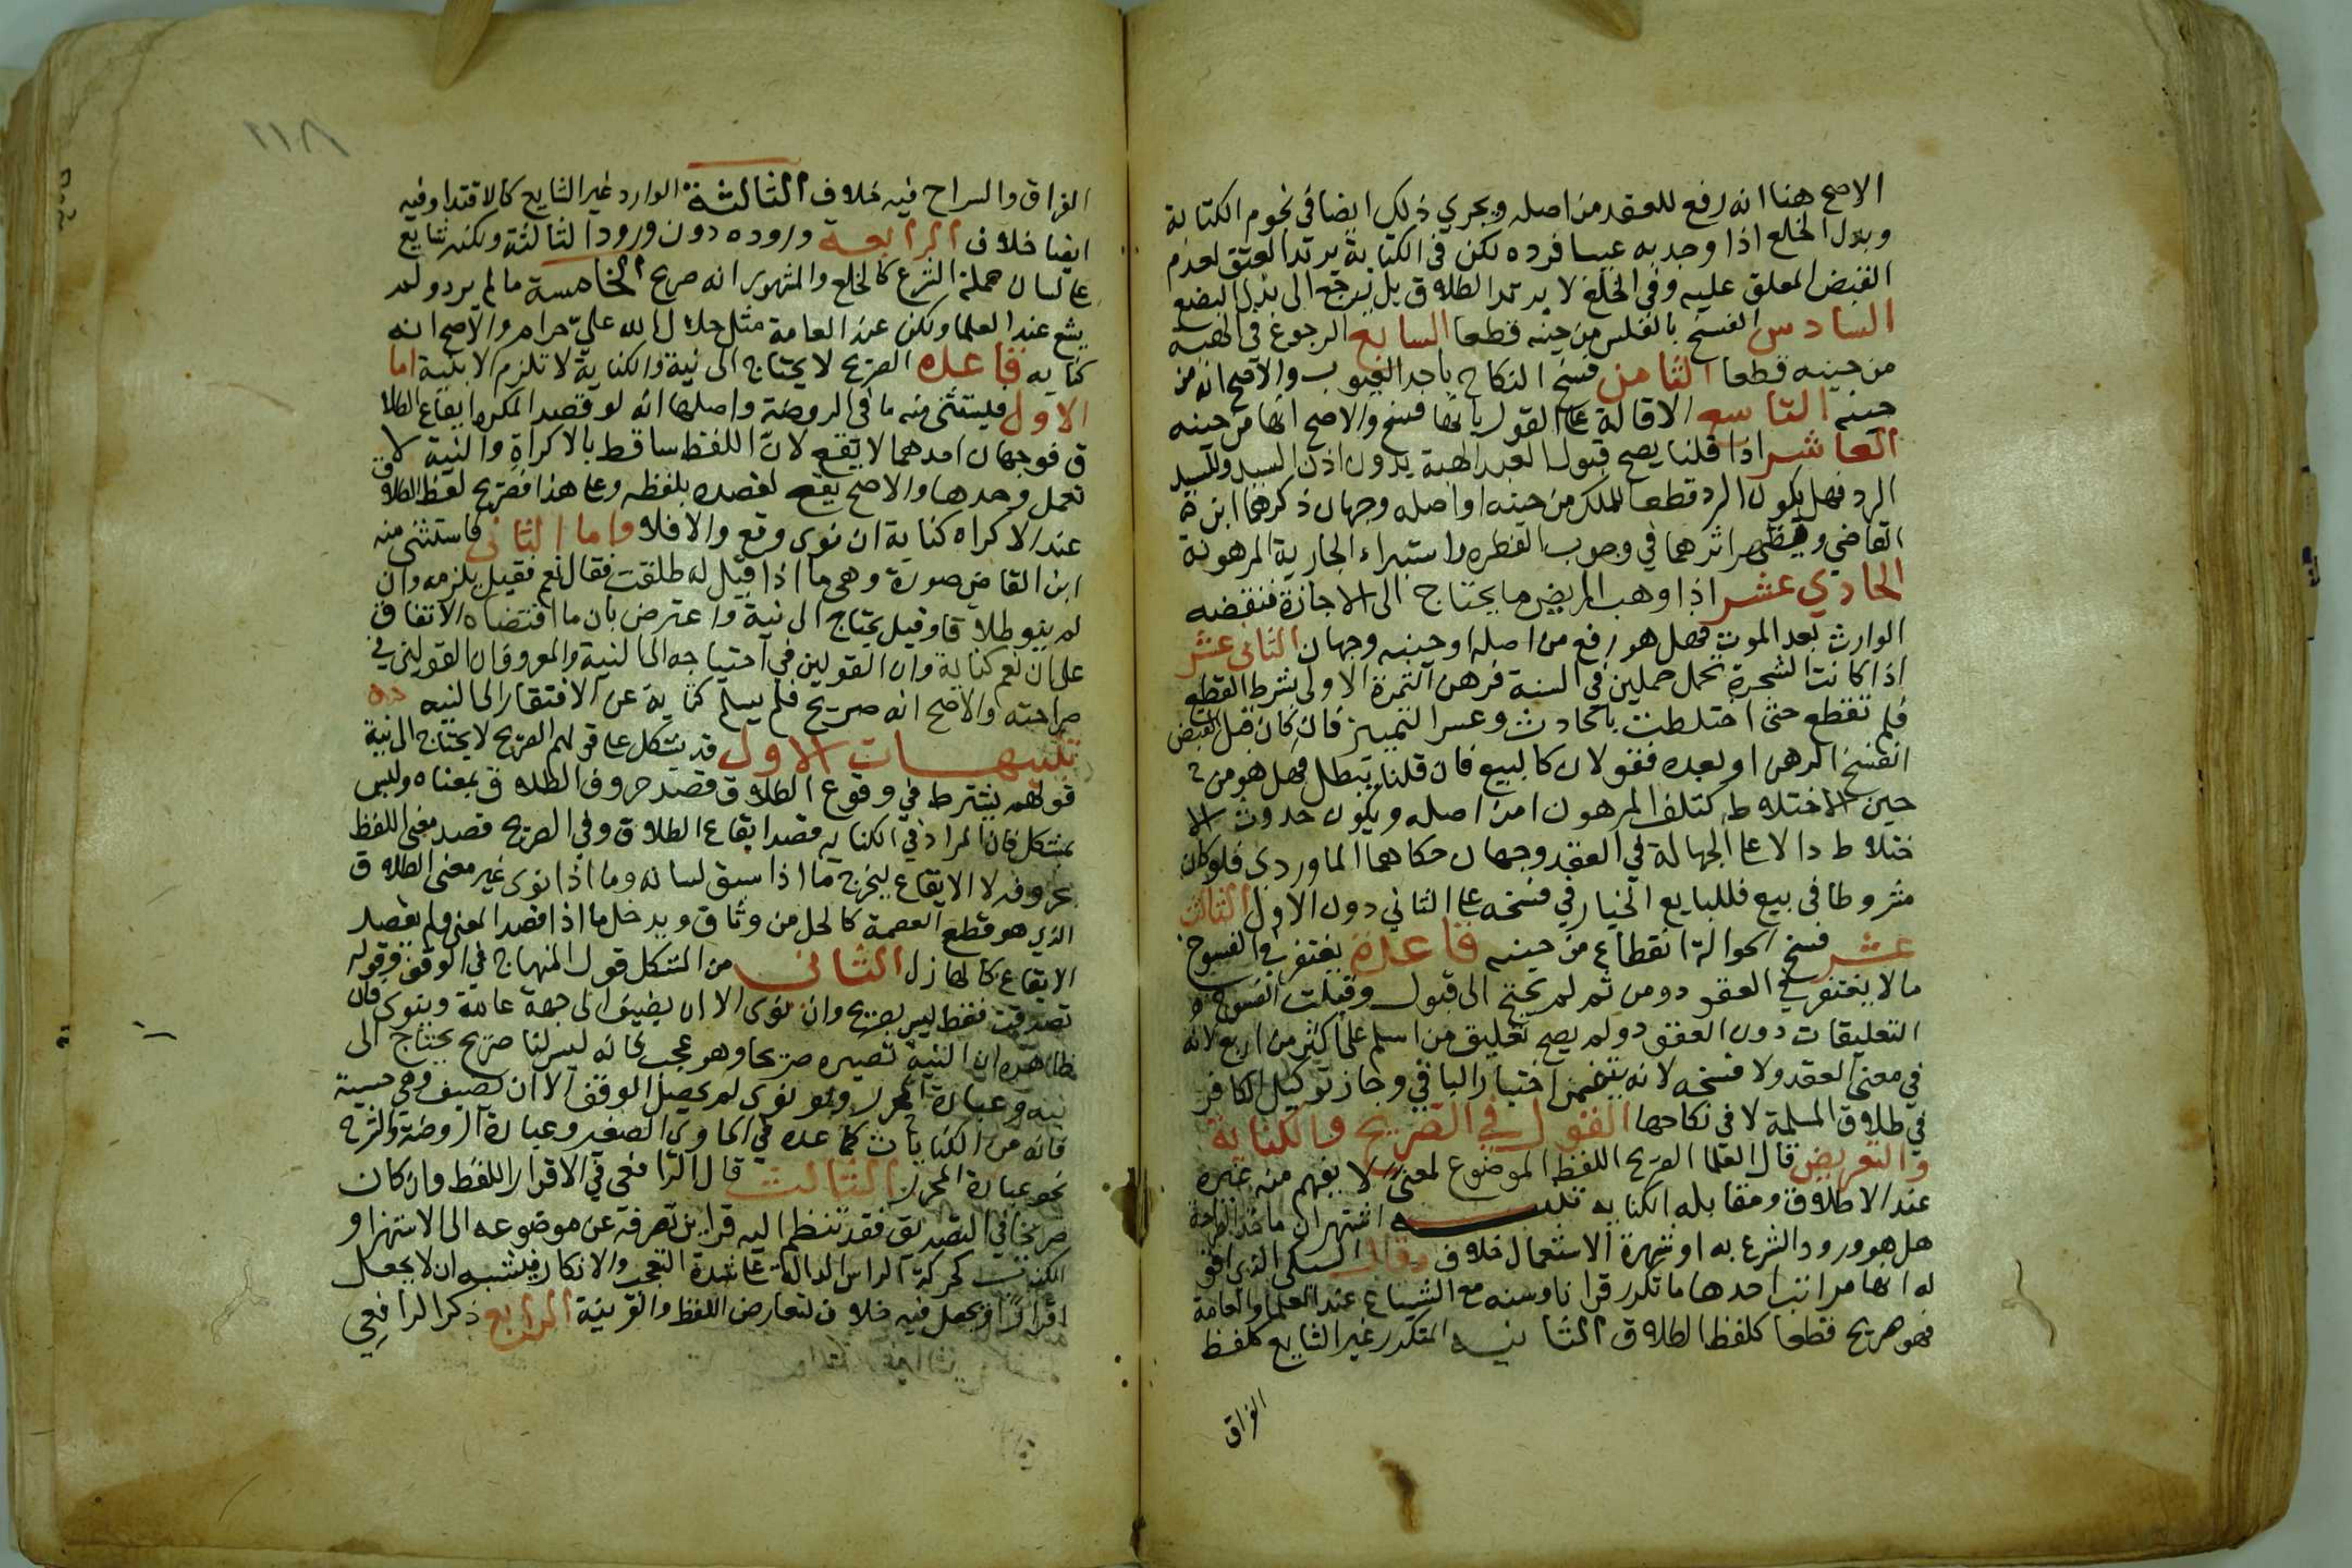 الاصح هنا انه رفع للعقد من اصله ويجري ذلك ايضا في نجوم الكتابة
وبدل الخلع اذا وجد به عيبا فرده لكن في الكتابة يرتد العتق لعدم
القبض المعلق عليه وفي الخلع لا يرتد الطلاق بل يرجع الى بدل البضع
السادس الفسخ بالفلس من حينه قطعا السابع الرجوع في الهبة
من حينه قطعا الثامن فسخ النكاح باحد العيوب والاصح انه من
حينه التاسع الاقالة على القول بانها فسخ والاصح انها من حينه
العاشر اذا قلنا يصح قبول العبد الهبة بدون اذن السيد وللسيد
الرد فهل يكون الرد قطعا للملك من حينه او اصله وجهان ذكرهما ابن
القاضي ويظهر اثرهما في وجوب الفطره واستبراء الجارية المرهونة
الحادي عشر اذا وهب المريض ما يحتاج الى الاجازة فنقضه
الوارث بعد الموت فهل هو رفع من اصله او حينه وجهان الثاني عشر
اذا كانت الشجرة تحمل حملين في السنة فرهن الثمرة الاولى بشرط القطع
فلم تقطع حتى اختلطت بالحادث وعسر التمييز فان كان قبل القبض
انفسخ الرهن او بعده فقولان كالبيع فان قلنا يبطل فهل هو من
حين الاختلاط كتلف المرهون ام من اصله ويكون حدوث الا
ختلاط دالا على الجهالة في العقد وجهان حكاهما الماوردي فلو كان
مشروطا في بيع فللبايع الخيار في فسخه على الثاني دون الاول الثالث
عشر فسخ الحوالة انقطاع من حينه قاعدة يغتفر في الفسوخ
ما لا يغتفر في العقود ومن ثم لم يحتج الى قبول وقبلت الفسوخ
التعليقات دون العقود ولم يصح تعليق من اسلم على اكثر من اربع لانه
في معنى العقد ولا فسخه لانه يتضمن اختيار الباقي وجاز توكيل الكافر
في طلاق المسلمة لا في نكاحها القول في الصريح والكناية
والتعريض قال العلما الصريح اللفظ الموضوع لمعنى لا يفهم منه غيره
عند الاطلاق ومقابله الكنايه تنبيه اشتهر ان ماخذ الصراحة
هل هو ورود الشرع به او شهرة الاستعمال خلاف وقال السبكي الذي اقو
له انها مراتب احدها ما تكرر قرانا وسنه مع الشياع عند العلما والعامة
فهو صريح قطعا كلفظ الطلاق الثانيه المتكرر غير الشايع كلفظ
الفراق
٢١٨
الفراق والسراح فيه خلاف الثالثة الوارد غير الشايع كالافتدا وفيه
ايضا خلاف الرابعة وروده دون ورود الثالثة ولكنه شايع
على لسان حملة الشرع كالخلع والمشهور انه صريح الخامسة ما لم يرد ولم
يشع عند العلما ولكن عند العامة مثل حلال الله علي حرام والاصح انه
كنايه قاعده الصريح لا يحتاج الى نية والكناية لا تلزم الا بنية اما
الاول فيستثنى منه ما في الروضة واصلها انه لو قصد المكره ايقاع الطلا
ق فوجهان احدهما لا يقع لان اللفظ ساقط بالاكراه والنية لا
تعمل وحدها والاصح يقع لقصده بلفظه وعلى هذا فصريح لفظ الطلاق
عند الاكراه كناية ان نوى وقع والا فلا واما الثاني فاستثنى منه
ابن القاص صورة وهي ما اذا قيل له طلقت فقال نعم فقيل يلزمه وان
لم ينو طلاقا وقيل يحتاج الى نية واعترض بان ما اقتضاه الاتفاق
على ان نعم كناية وان القولين في احتياجه الى النية والمعروف ان القولين في
صراحته والاصح انه صريح فلم يسلم كناية عن الافتقار الى النيه
تنبيهات الاول قد يشكل على قولهم الصريح لا يحتاج الى نية
قولهم يشترط في وقوع الطلاق قصد حروف الطلاق بمعناه وليس
بمشكل فان المراد في الكنايه قصد ايقاع الطلاق وفي الصريح قصد معنى اللفظ
بحروفه لا الايقاع ليخرج ما اذا سبق لسانه وما اذا نوى غير معنى الطلاق
الذي هو قطع العصمة كالحل من وثاق ويدخل ما اذا قصد المعنى ولم يقصد
الايقاع كالهازل الثاني من المشكل قول المنهاج في الوقف وقوله
تصدقت فقط ليس بصريح وان نوى الا ان يضيف الى جهة عامة وينوي فان
ظاهره ان النية تصيره صريحا وهو عجب فانه ليس لنا صريح يحتاج الى
نيه وعبارة المحرر ولو نوى لم يحصل الوقف الا ان يضيف وهي حسنة
فانه من الكنايات كما عده في الحاوي الصغير وعبارة الروضة والشرح
نحو عبارة المحرر الثالث قال الرافعي في الاقرار اللفظ وان كان
صريحا في التصديق فقد تنظم اليه قراين تصرفه عن موضوعه الى الاستهزا و
التكذيب كحركة الراس الدالة على شدة التعجب والانكار فيشبه ان لا يجعل
اقرارا او يجعل فيه خلاف لتعارض اللفظ والقرينة الرابع ذكر الرافعي